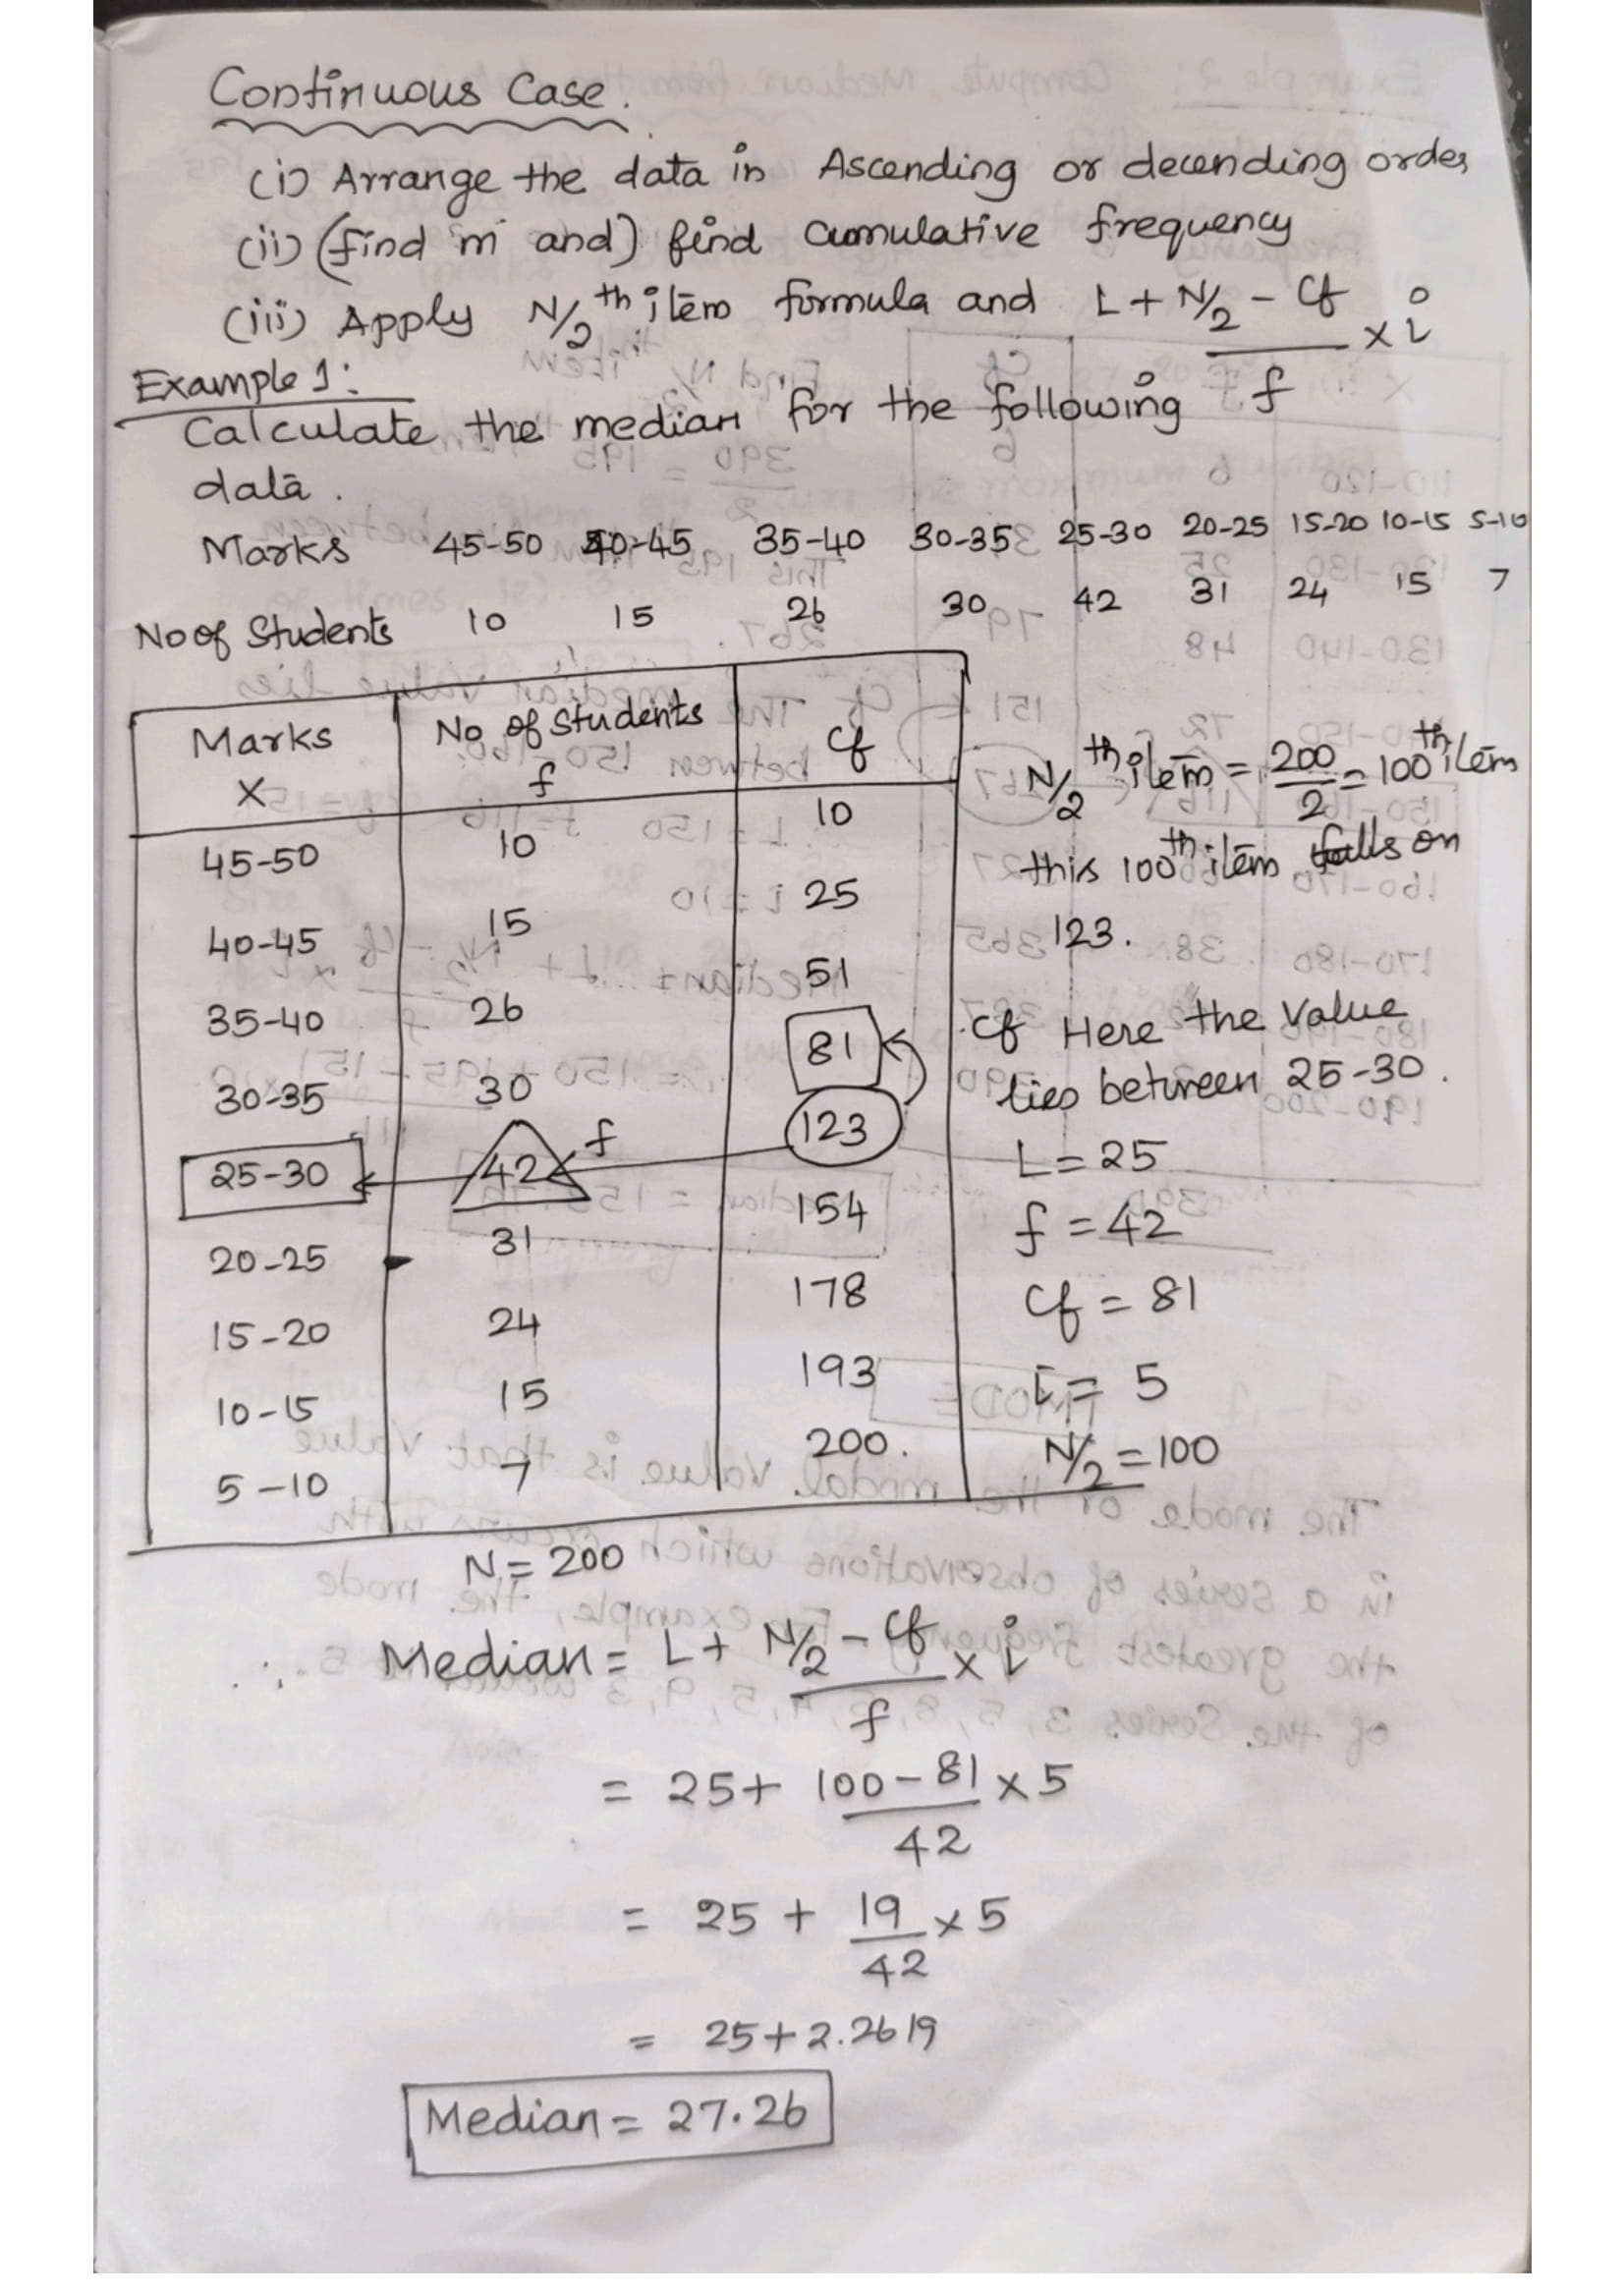 Continuous Case.
(i) Arrange the data in Ascending or decending order
(ii) (find m and) find cumulative frequency
(iii) Apply N/2 th item formula and L + N/2 - Cf / f × i
Example 1:
Calculate the median for the following
data.
Marks 45-50 40-45 35-40 30-35 25-30 20-25 15-20 10-15 5-10
No of Students 10 15 26 30 42 31 24 15 7
Marks X No of Students f Cf
45-50 10 10
40-45 15 25
35-40 26 51
30-35 30 81
25-30 42 f 123
20-25 31 154
15-20 24 178
10-15 15 193
5-10 7 200.
N = 200
N/2 th item = 200/2 = 100th item
this 100th item falls on
123.
Cf Here the value
lies between 25-30.
L = 25
f = 42
Cf = 81
i = 5
N/2 = 100
∴ Median = L + N/2 - Cf / f × i
= 25 + 100 - 81 / 42 × 5
= 25 + 19/42 × 5
= 25 + 2.2619
Median = 27.26